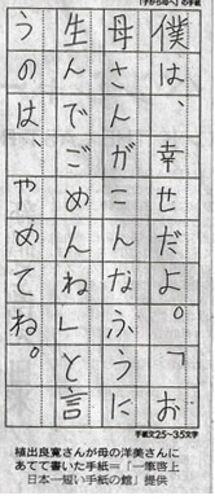 「子から母へ」の手紙
僕は、幸せだよ。「お
母さんがこんなふうに
生んでごめんね」と言
うのは、やめてね。
手紙文25~35文字
植出良寛さんが母の洋美さんに
あてて書いた手紙=「一筆啓上
日本一短い手紙の館」提供